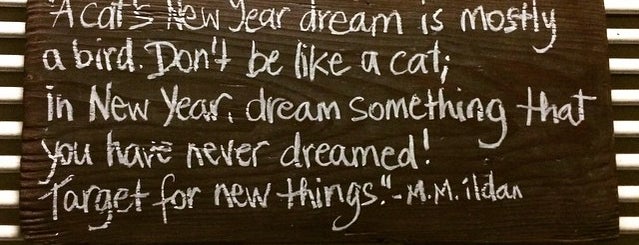 "A cat's New Year dream is mostly
a bird. Don't be like a cat;
in New Year, dream something that
you have never dreamed!
Target for new things." - M.M. ildan